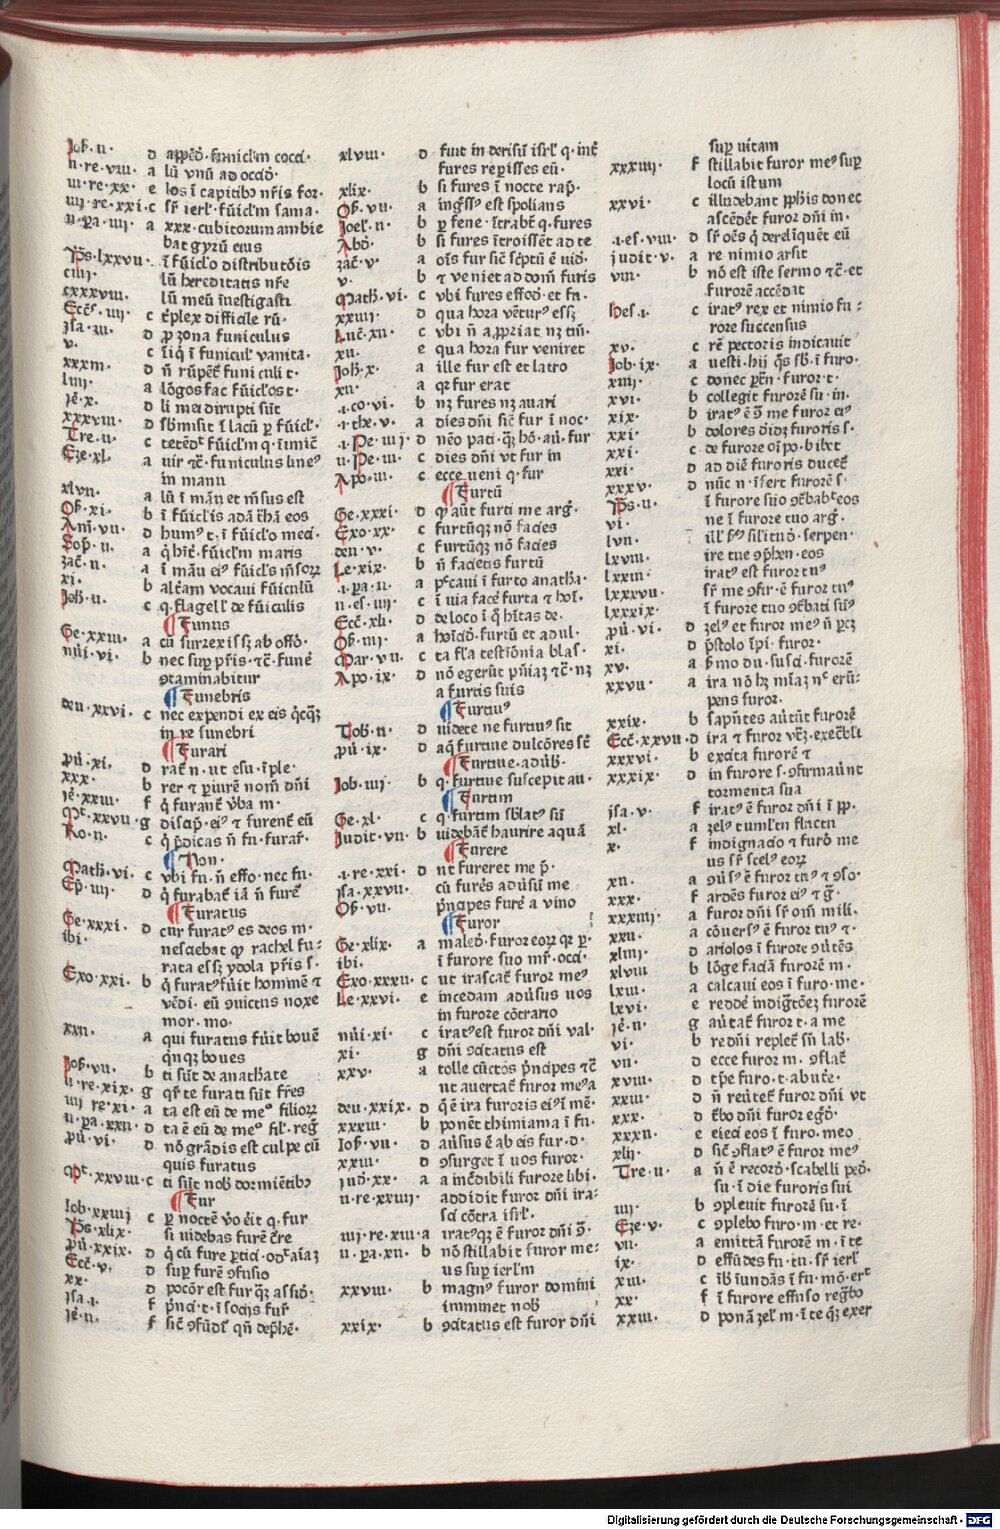 Job. ii. d appēd. funicl'm cocci.
ii. re. viii. a lū vnū ad occid.
iii. re. xx. e los ī capitibꝰ nr̄is for.
iiij. re. xxi. c sr̄ ierl' fūicl'm sama.
ii. pa. iiij. a xxx. cubitorum ambie
bat gyrū eius
Ps. lxxvii. ī fūicl'o distributōis
ciiij. lū hereditatis nr̄e
cxxxviii. lū meū īuestigasti
Ecc̄s. iiij. c tͥplex difficile rū.
Jsa. iii. d p zona funiculus
v. c līq ī funicul' vanita.
xxxiii. d n̄ rūpēt funiculi t.
liiij. a lōgos fac fūicl'os t.
Je. x. d li mei dirupti sūt
xxxviii. d sb̄misit ī lacū p fūicl'.
Tre. ii. c tetēdͭ fūicl'm q. īimic̄
Eze. xl. a uir ⁊c̄ funiculus lineꝰ
in manu
xlvii. a lū ī māu et mēsus est
Ob. xi. b ī fūicl'is adā th̄ā eos
Am. vii. d humꝰ t. ī fūicl'o meci.
Sop. ii. a q̇ hīt fūicl'm maris
zac. ii. a ī māu eiꝰ fūicl's
xi. b alt̄am vocaui fūiculū
Joh. ii. c q. flagell' de fūiculis
Funus
Ge. xxiii. a cū surrexiss; ab offō.
nūi. vi. b nec sup pr̄is. ⁊c̄. funē
ꝯtaminabitur
Funebris
deu. xxvi. c nec expendi ex eis q̇cq̄;
in re funebri
Furari
pū. xi. d rat̄ n. ut esu. īple.
xxx. b rer ⁊ piurē nom̄ dn̄i
Je. xxiii. f q̇ furant̄ v̄ba m.
Mt. xxvii. g discip. eiꝰ ⁊ furent̄ eū
Ro. ii. c q̇ p̄dicas n̄ fu. furar̄.
Non.
Math. vi. c vbi fu. n̄ effo. nec fu.
Ep. iiij. d q̇ furabat̄ iā n̄ furet̄
Furatus
Ge. xxxi. d cur furatꝰ es deos m.
ibi. nesciebat qp rachel fu-
rata ess; ydola pr̄is s.
Exo. xxi. b q̇ furatꝰ fūit hominē ⁊
vēdi. eū ꝯuictus noxe
mor. mo.
xxii. a qui furatus fūit bouē
qͥnq; boues
Job. vii. b ti sūt de anathate
ii. re. xix. g qr̄ te furati sūt fr̄es
iiij re. xi. a ta est eū de meͦ filioꝝ
ii. pa. xxii. d ta ē eū de meͦ fil'. reg̃
pū. vi. d nō grādis est culpe cū
quis furatus
Mt. xxviii. c ti sūt nob̄ dormiētibꝰ
Fur
Iob. xxiiij c p noctē v̄o ēit q. fur
Ps. xlix. si uidebas furē c̄re
pū. xxix. d q̇ cū fure pticͥ. odͭ aīaz
Ecc̄. v. d sup furē ꝯfusio
xx. d pocōr est fur q̇; assid.
Jsa. i. f p̄nci. t. ī socijs fur̄
Je. ii. f sic̄ ꝯfūdͭ qn̄ dep̄hē.
xlviii. d fuit in derisū isrl' q. int̄
fures reperisses eū.
xlix. b si fures ī nocte rap̄.
Ob. vii. c ingr̄ssꝰ est spolians
Joel. ii. b p fene. īrabt̄ q. fures
Abd. b si fures ītroissēt ad te
zac. v. a oīs fur sic̄ sc̄ptū ē uid.
v. b ⁊ veniet ad dom̄ furis
Math. vi. c vbi fures effod. et fu.
xxiiij. d qua hora vēturꝰ ess;
Luc. xii. c vbi n̄ appriat n; tiñ.
xii. e qua hora fur veniret
Joh. x. a ille fur est et latro
xii. a qr fur erat
.i. co. vi. b n; fures n; auari
.i. the. v. a dies dn̄i sic̄ fur ī noc.
.i. Pe. iiij. d nēo pati. q̄; hō. aū. fur
ii. Pe. iii. c dies dn̄i vt fur in
Apo. iii. c ecce ueni q. fur
Furtū
Ge. xxxi. d qp aūt furti me arg̃.
Exo. xx. c furtūq; nō facies
deu. v. c furtūq; nō facies
Le. xix. b n̄ facietis furtū
.i. pa. ii. a pͨcaui ī furto anath̄a.
ii. es. iiij. c ī uia face̅t furta ⁊ hoī.
Ecc̄. xli. d de loco ī q̇ hītas de.
Ob. iiij. a hoīcid. furtū et adul.
Mar. vii. c ta fl'a testiōnia blas.
Apo. ix. d nō egerūt pn̄iaz ⁊c̄. n;
a furtis suis
Furtiuꝰ
Tob. ii. d uidete ne furtiuꝰ sit
pū. ix. d aq̄ furtiue dulcōres sc̄
Furtiue. adūb.
Iob. iiij. b q. furtiue suscepit au.
Furtim
Ge. xl. c q. furtim sb̄latꝰ sū
Judit. vii. b uidebāt̄ haurire aquā
Furere
.i. re. xxi. d ut fureret me p̄.
Jsa. xxvii. cū furēs adūsū me
Ob. vii. p̄ncipes furē a vino
Furor
Ge. xlix. a maled. furor eoꝝ qr p.
ibi. ī furore suo mr̄. occi.
Exo. xxxii. c ut irascat̄ furor meꝰ
Le. xxvi. e incedam adūsus uos
in furore cōtrario
nūi. xi. c iratꝰ est furor dn̄i val.
xi. g dn̄i ꝯcitatus est
xxv. a tolle cūctos p̄ncipes ⁊c̄
ut auertat̄ furor meꝰ a
deu. xxix. d q̇ ē ira furoris eiꝰ ī mē.
xxxiii. b ponēt thimiama ī fu.
Job. vii. d aūsus ē ab eis fur. d.
xxiii. d ꝯsurget ī uos furor.
Jud. xx. a a incēdibili furore libi.
ii. re. xxiiij. addidit furor dn̄i ira-
sci cōtra isrl'.
iiij. re. xiii. a iratꝰq; ē furor dn̄i ꝯ̄.
ii. pa. xii. b nō stillabit furor me-
us sup ierl'm
xxviii. b magnꝰ furor domini
imminet nob̄
xxix. b ꝯcitatus est furor dn̄i
sup uitam
xxxiiij. f stillabit furor meꝰ sup
locū istum
xxvi. c illudebant pphis donec
ascēdēt furor dn̄i in.
.i. es. viii. d sr̄ oēs q̇ dereliquēt eū
judit. v. a re nimio arsit
viii. b nō est iste sermo ⁊c̄. et
furorē accēdat
hes. i. c iratꝰ rex et nimio fu-
rore succensus
xv. c rē pectoris indicauit
Job. ix. a uesti. hij q̇s sb̄. ī furo.
xiiij. c donec ptͬn. furor t.
xvi. b collegit furorē su. in.
xix. b iratꝰ ē ꝯ̄ me furor eiꝰ
xxi. b dolores diͥd; furoris s.
xxi. c de furore oīpo. bibet
xxi. d ad diē furoris ducet̄
xxxv. d nūc n. īfert furorē s.
Ps. ii. ī furore suo ꝯt̄babͭ eos
vi. ne ī furore tuo arg̃.
lvii. ill' sil'itud. serpen.
lxviii. ire tue ꝯp̄hen. eos
lxxiii. iratꝰ est furor tuꝰ
lxxxvii. sr̄ me ꝯfir. ē furor tuꝰ
lxxxix. ī furore tuo ꝯt̄bati sūꝰ
pū. vi. d zelꝰ et furor meꝰ n̄ pc;
xi. d p̄stolo īpi. furor.
xv. a p̄mo du. susci. furorē
xxvii. a ira nō h; mīaz nͨ erū-
pens furor.
xxix. b sapn̄tes aūtūt furorē
Ecc̄. xxvii. d ira ⁊ furor vt̄; execͣbl'i
xxxvi. b excita furorē ⁊
xxxix. d in furore s. ꝯfirmaūnt
tormenta sua
jsa. v. f iratꝰ ē furor dn̄i ī pp.
xl. a zelꝰ tuml'tn flactu
x. f indignatio ⁊ furor me
us sr̄ scelꝰ eoꝝ
xii. a ꝯūsꝰ ē furor tuꝰ ⁊ ꝯso.
xxx. f ardēs furor eiꝰ ⁊ g̃.
xxxiiij. a furor dn̄i sr̄ om̄ mili.
xxii. a cōuersꝰ ē furor tuꝰ ⁊.
xliiij. d ariolos ī furore ꝯūtēs
xlviii b lōge faciā furorē m.
lxiii. a calcaui eos ī furo. me.
lxvi. e reddē indigͣtōez furorē
Je. ii. g aūtat̄ furor t. a me
vi. b re dn̄i replet̄ sū lab.
vii. d ecce furor m. ꝯflat̄
xviii. d tp̄e furo. t. abute.
xxiii. d n̄ reūtet̄ furor dn̄i vt
xxx. d t̄bo dn̄i furor egr̄d.
xxxii. e eieci eos ī furo. meo
xlij. d sic̄ ꝯflatꝰ ē furor meꝰ
Tre. ii. a n̄ ē record. scabelli ped.
su. ī die furoris sui
iiij. b ꝯpleuit furorē su. ī
Eze. v. c ꝯplebo furo. m. et re.
vii. a emittā furorē m. ī te
ix. d effūdes fu. tu. sr̄ ierl'
xiii. c īb̄ īundās ī fu. mō. ert
xx. f ī furore effuso reg̃bo
xxiii. d ponā zel' m. ī te q̇; exer
Digitalisierung gefördert durch die Deutsche Forschungsgemeinschaft - DFG